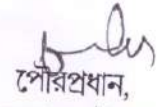 পৌরপ্রধান,